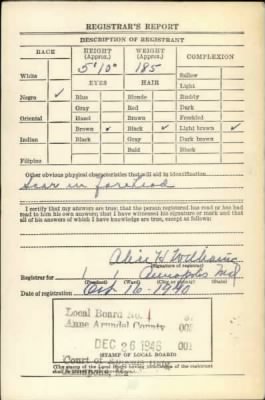 REGISTRAR'S REPORT
DESCRIPTION OF REGISTRANT
RACE HEIGHT (Approx.) WEIGHT (Approx.) COMPLEXION
5' 10" 185
White Sallow
EYES HAIR Light
Negro ✓ Blue Blonde Ruddy
Gray Red Dark
Oriental Hazel Brown Freckled
Brown ✓ Black ✓ Light brown ✓
Indian Black Gray Dark brown
Bald Black
Filipino
Other obvious physical characteristics that will aid in identification
Scar in forehead
I certify that my answers are true; that the person registered has read or has had
read to him his own answers; that I have witnessed his signature or mark and that
all of his answers of which I have knowledge are true, except as follows:
Alice H. Williams
(Signature of registrar)
Registrar for Annapolis Md
(Precinct) (Ward) (City or county) (State)
Date of registration Oct 16-1940
Local Board No. 1
Anne Arundel County
DEC 26 1946
STAMP OF LOCAL BOARD
Court of
(The stamp of the Local Board having jurisdiction of the registrant
shall be placed in the above space.)